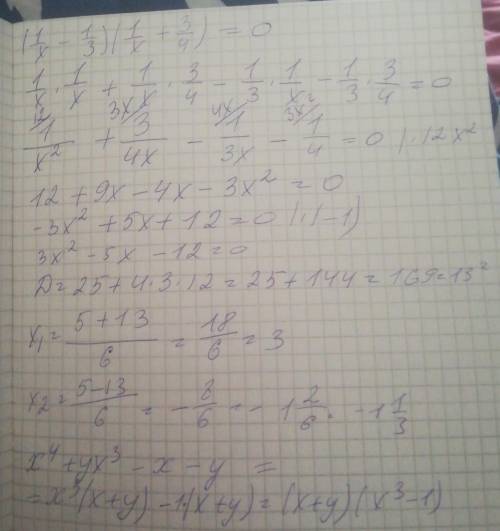 (1/x - 1/3)(1/x + 3/4) = 0
1/x · 1/x + 1/x · 3/4 - 1/3 · 1/x - 1/3 · 3/4 = 0
12/ 3x/ 4x/ 3x²/
1/x² + 3/4x - 1/3x - 1/4 = 0 | · 12x²
12 + 9x - 4x - 3x² = 0
-3x² + 5x + 12 = 0 | · (-1)
3x² - 5x - 12 = 0
D = 25 + 4·3·12 = 25 + 144 = 169 = 13²
x₁ = 5+13/6 = 18/6 = 3
x₂ = 5-13/6 = - 8/6 = - 1 2/6 = -1 1/3
x⁴ + yx³ - x - y =
= x³(x+y) - 1(x+y) = (x+y)(x³-1)